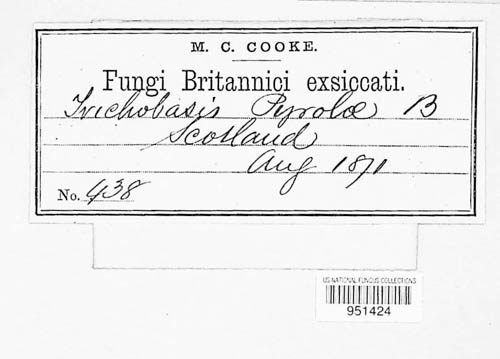 M. C. COOKE.
Fungi Britannici exsiccati.
Trichobasis Pyrolæ B
Scotland
Aug 1871
No. 438
US NATIONAL FUNGUS COLLECTIONS
951424